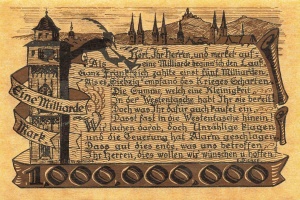 Hört, Ihr Herren, und merket auf:
Als eine Milliarde begann ich den Lauf
Ganz Frankreich zahlte einst fünf Milliarden,
Als es Krieg des Krieges
Die Summe, welch eine Kleinigkeit
In der Westentasche habt Ihr sie bereit
Doch was Ihr dafür auch kaufet ein
Passt fast in die Westentasche hinein.
Wir haben doch Unzählige Plagen
und die Feuerung hat Alarm geschlagen
Dass auf dies ende, was uns betroffen
Ihr Herren, dies wollen wir wünschen u. hoffen
Eine Milliarde
Mark
1000000000